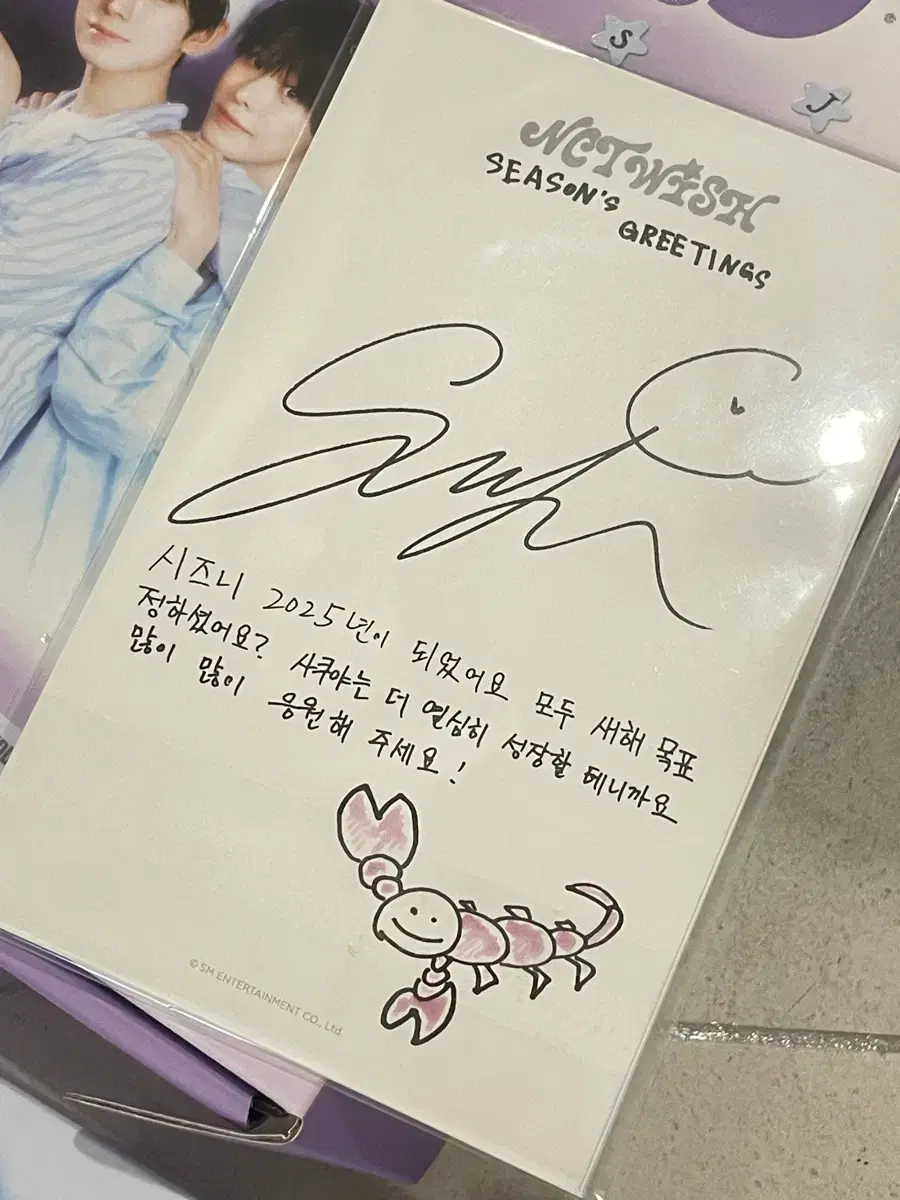 S
J
NCT WISH
SEASON'S
GREETINGS
시즈니 2025년이 되었어요 모두 새해 목표
정하셨어요? 사쿠야는 더 열심히 성장할 테니까요
많이 많이 응원해 주세요!
© SM ENTERTAINMENT CO., Ltd